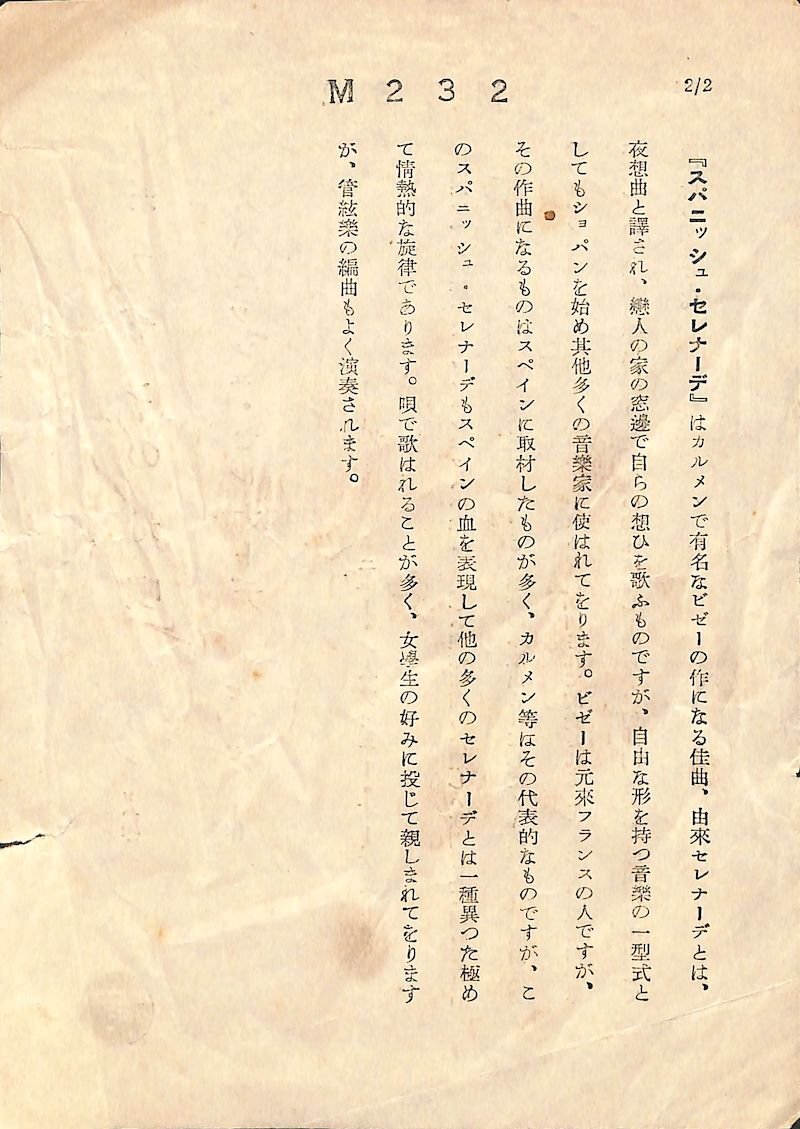 2/2
M232
『スパニッシュ・セレナーデ』はカルメンで有名なビゼーの作になる佳曲、由來セレナーデとは、
夜想曲と譯され、戀人の家の窓邊で自らの想ひを歌ふものですが、自由な形を持つ音樂の一型式と
してもショパンを始め其他多くの音樂家に使はれてをります。ビゼーは元來フランスの人ですが、
その作曲になるものはスペインに取材したものが多く、カルメン等はその代表的なものですが、こ
のスパニッシュ・セレナーデもスペインの血を表現して他の多くのセレナーデとは一種異つた極め
て情熱的な旋律であります。唄で歌はれることが多く、女學生の好みに投じて親しまれてをります
が、管絃樂の編曲もよく演奏されます。